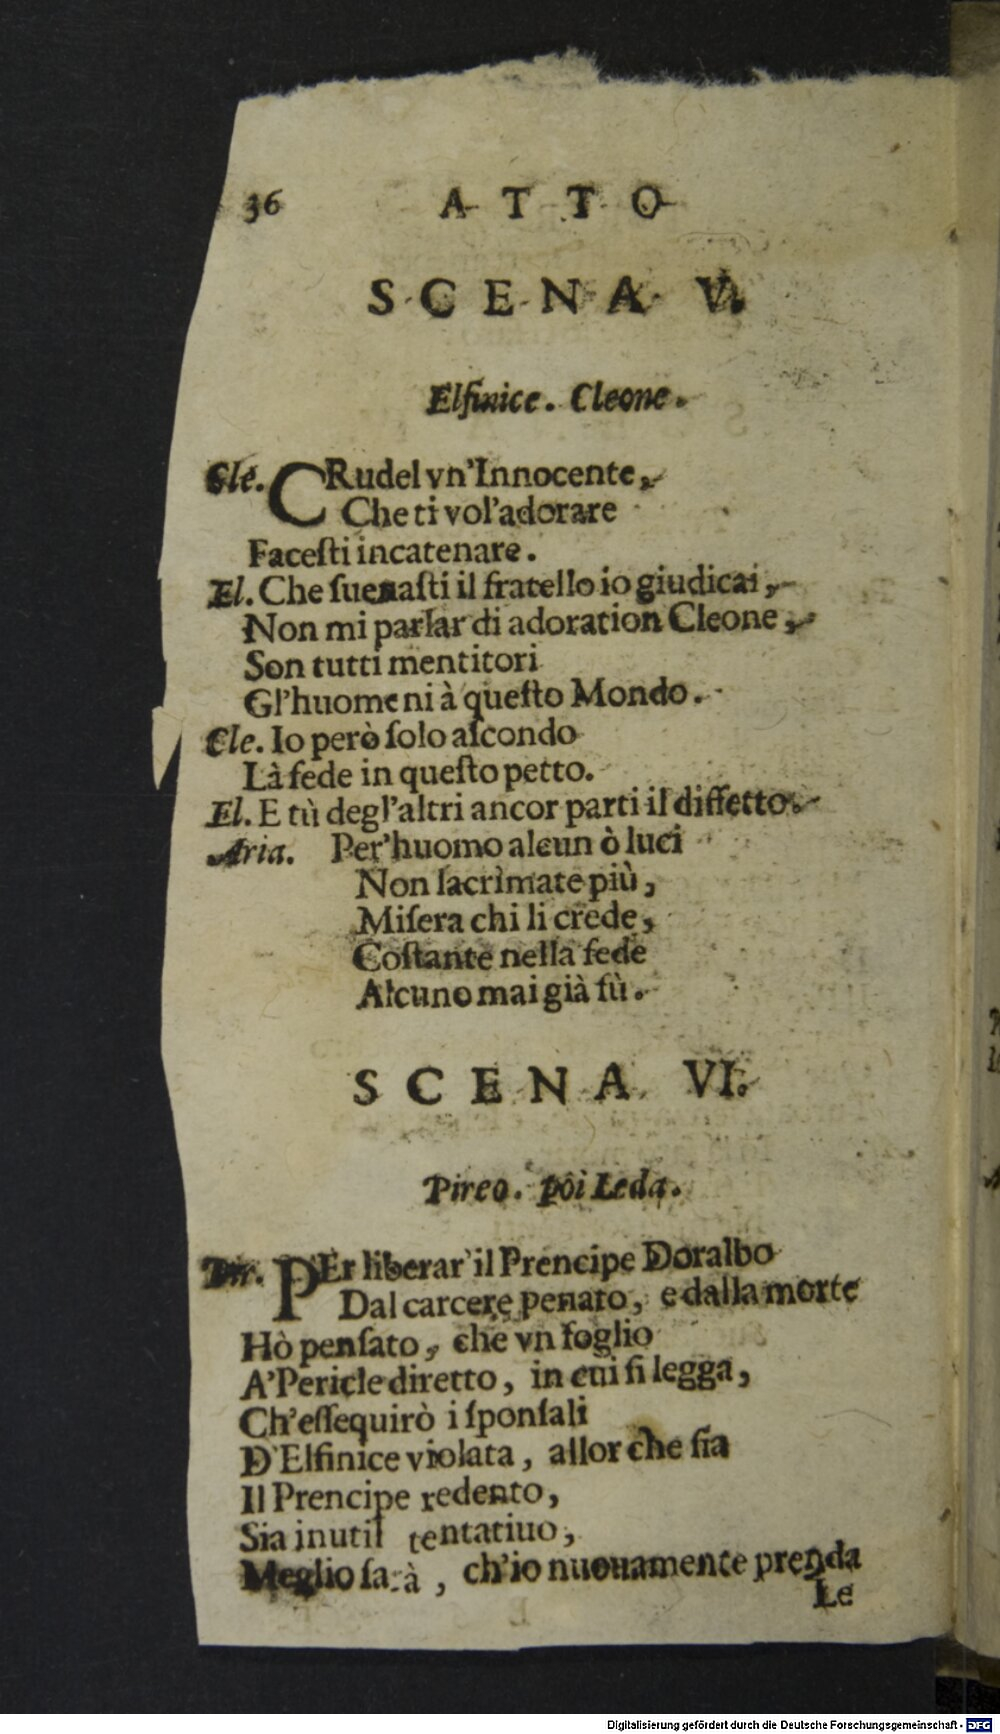 36 ATTO
SCENA V.
Elfinice. Cleone.
Cle. CRudel vn'Innocente,
Che ti vol'adorare
Facesti incatenare.
El. Che suenasti il fratello io giudicai,
Non mi parlar di adoration Cleone,
Son tutti mentitori
Gl'huomeni à questo Mondo.
Cle. Io però solo ascondo
Là fede in questo petto.
El. E tù degl'altri ancor parti il diffetto.
Aria. Per'huomo alcun ò luci
Non lacrimate più,
Misera chi li crede,
Costante nella fede
Alcuno mai già fù.
SCENA VI.
Pireo. pòi Leda.
Pir. PEr liberar'il Prencipe Doralbo
Dal carcere penato, e dalla morte
Hò pensato, che vn foglio
A'Pericle diretto, in cui si legga,
Ch'essequirò i sponsali
D'Elfinice violata, allor che sia
Il Prencipe redento,
Sia inutil tentatiuo,
Meglio sarà, ch'io nuouamente prenda
Le
Digitalisierung gefördert durch die Deutsche Forschungsgemeinschaft - DFG